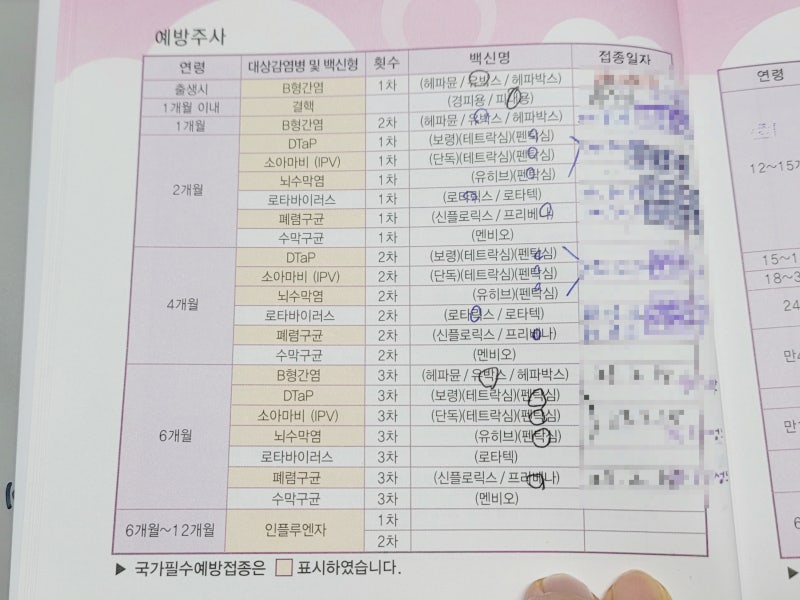 예방주사
연령 대상감염병 및 백신형 횟수 백신명 접종일자 연령
출생시 B형간염 1차 (헤파뮨 / 유박스 / 헤파박스)
1개월 이내 결핵 (경피용 / 피내용)
1개월 B형간염 2차 (헤파뮨 / 유박스 / 헤파박스)
2개월 DTaP 1차 (보령)(테트락심)(펜탁심)
소아마비 (IPV) 1차 (단독)(테트락심)(펜탁심)
뇌수막염 1차 (유히브)(펜탁심)
로타바이러스 1차 (로타릭스 / 로타텍)
폐렴구균 1차 (신플로릭스 / 프리베나)
수막구균 1차 (멘비오)
4개월 DTaP 2차 (보령)(테트락심)(펜탁심)
소아마비 (IPV) 2차 (단독)(테트락심)(펜탁심)
뇌수막염 2차 (유히브)(펜탁심)
로타바이러스 2차 (로타릭스 / 로타텍)
폐렴구균 2차 (신플로릭스 / 프리베나)
수막구균 2차 (멘비오)
6개월 B형간염 3차 (헤파뮨 / 유박스 / 헤파박스)
DTaP 3차 (보령)(테트락심)(펜탁심)
소아마비 (IPV) 3차 (단독)(테트락심)(펜탁심)
뇌수막염 3차 (유히브)(펜탁심)
로타바이러스 3차 (로타텍)
폐렴구균 3차 (신플로릭스 / 프리베나)
수막구균 3차 (멘비오)
6개월~12개월 인플루엔자 1차
2차
▶ 국가필수예방접종은 표시하였습니다.